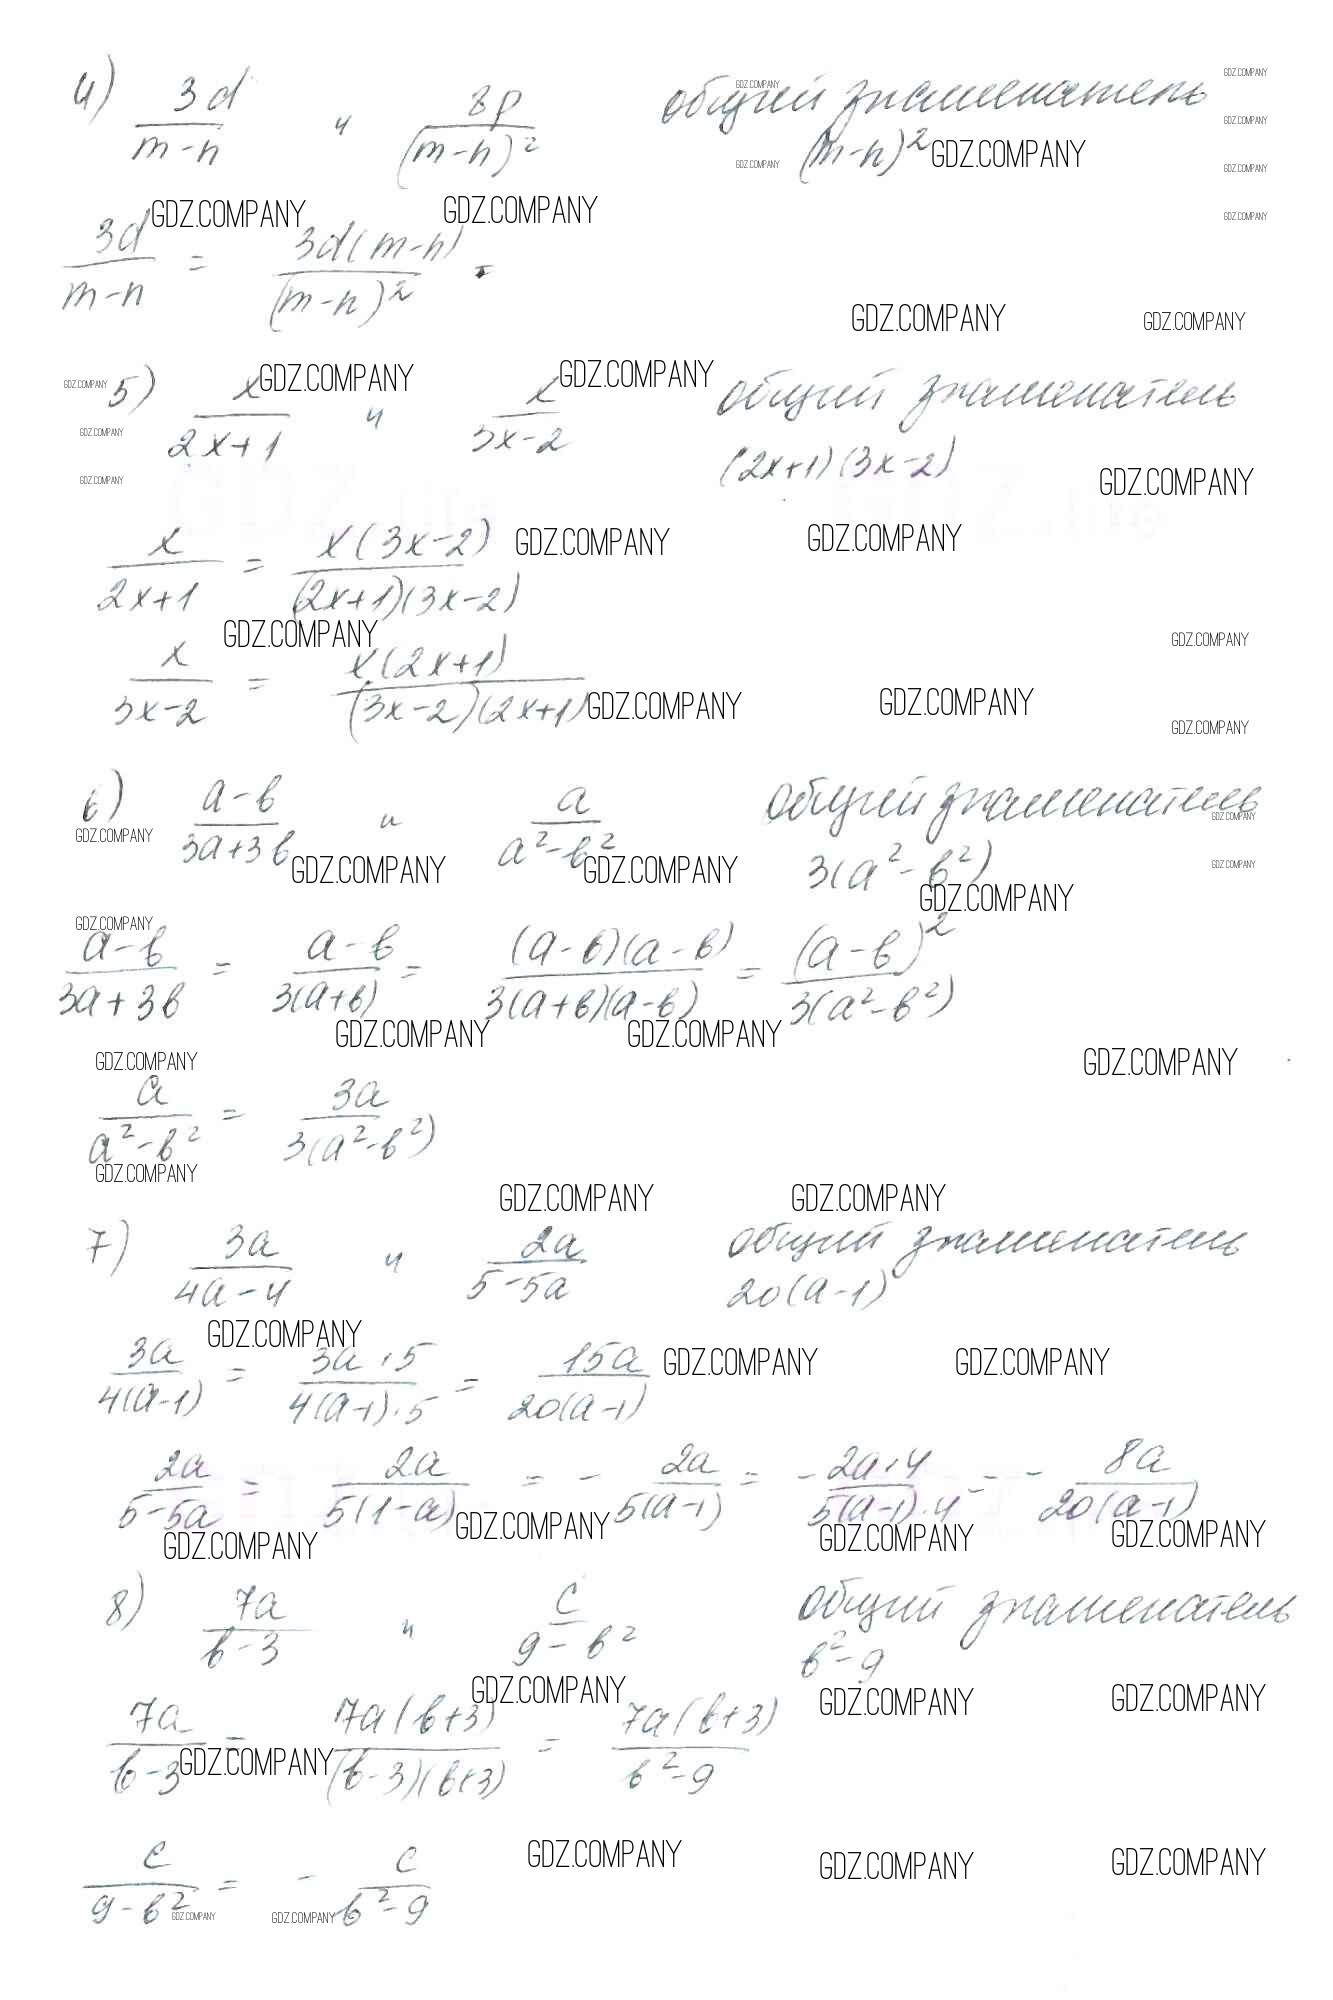 4) 3d/(m-n) и 8p/(m-n)² общий знаменатель (m-n)²
3d/(m-n) = 3d(m-n)/(m-n)²
5) x/(2x+1) и x/(3x-2) общий знаменатель (2x+1)(3x-2)
x/(2x+1) = x(3x-2)/((2x+1)(3x-2))
x/(3x-2) = x(2x+1)/((3x-2)(2x+1))
6) (a-b)/(3a+3b) и a/(a²-b²) общий знаменатель 3(a²-b²)
(a-b)/(3a+3b) = (a-b)/(3(a+b)) = (a-b)(a-b)/(3(a+b)(a-b)) = (a-b)²/(3(a²-b²))
a/(a²-b²) = 3a/(3(a²-b²))
7) 3a/(4a-4) и 2a/(5-5a) общий знаменатель 20(a-1)
3a/(4(a-1)) = 3a·5/(4(a-1)·5) = 15a/(20(a-1))
2a/(5-5a) = 2a/(5(1-a)) = - 2a/(5(a-1)) = - 2a·4/(5(a-1)·4) = - 8a/(20(a-1))
8) 7a/(b-3) и c/(9-b²) общий знаменатель b²-9
7a/(b-3) = 7a(b+3)/((b-3)(b+3)) = 7a(b+3)/(b²-9)
c/(9-b²) = - c/(b²-9)
GDZ.COMPANY